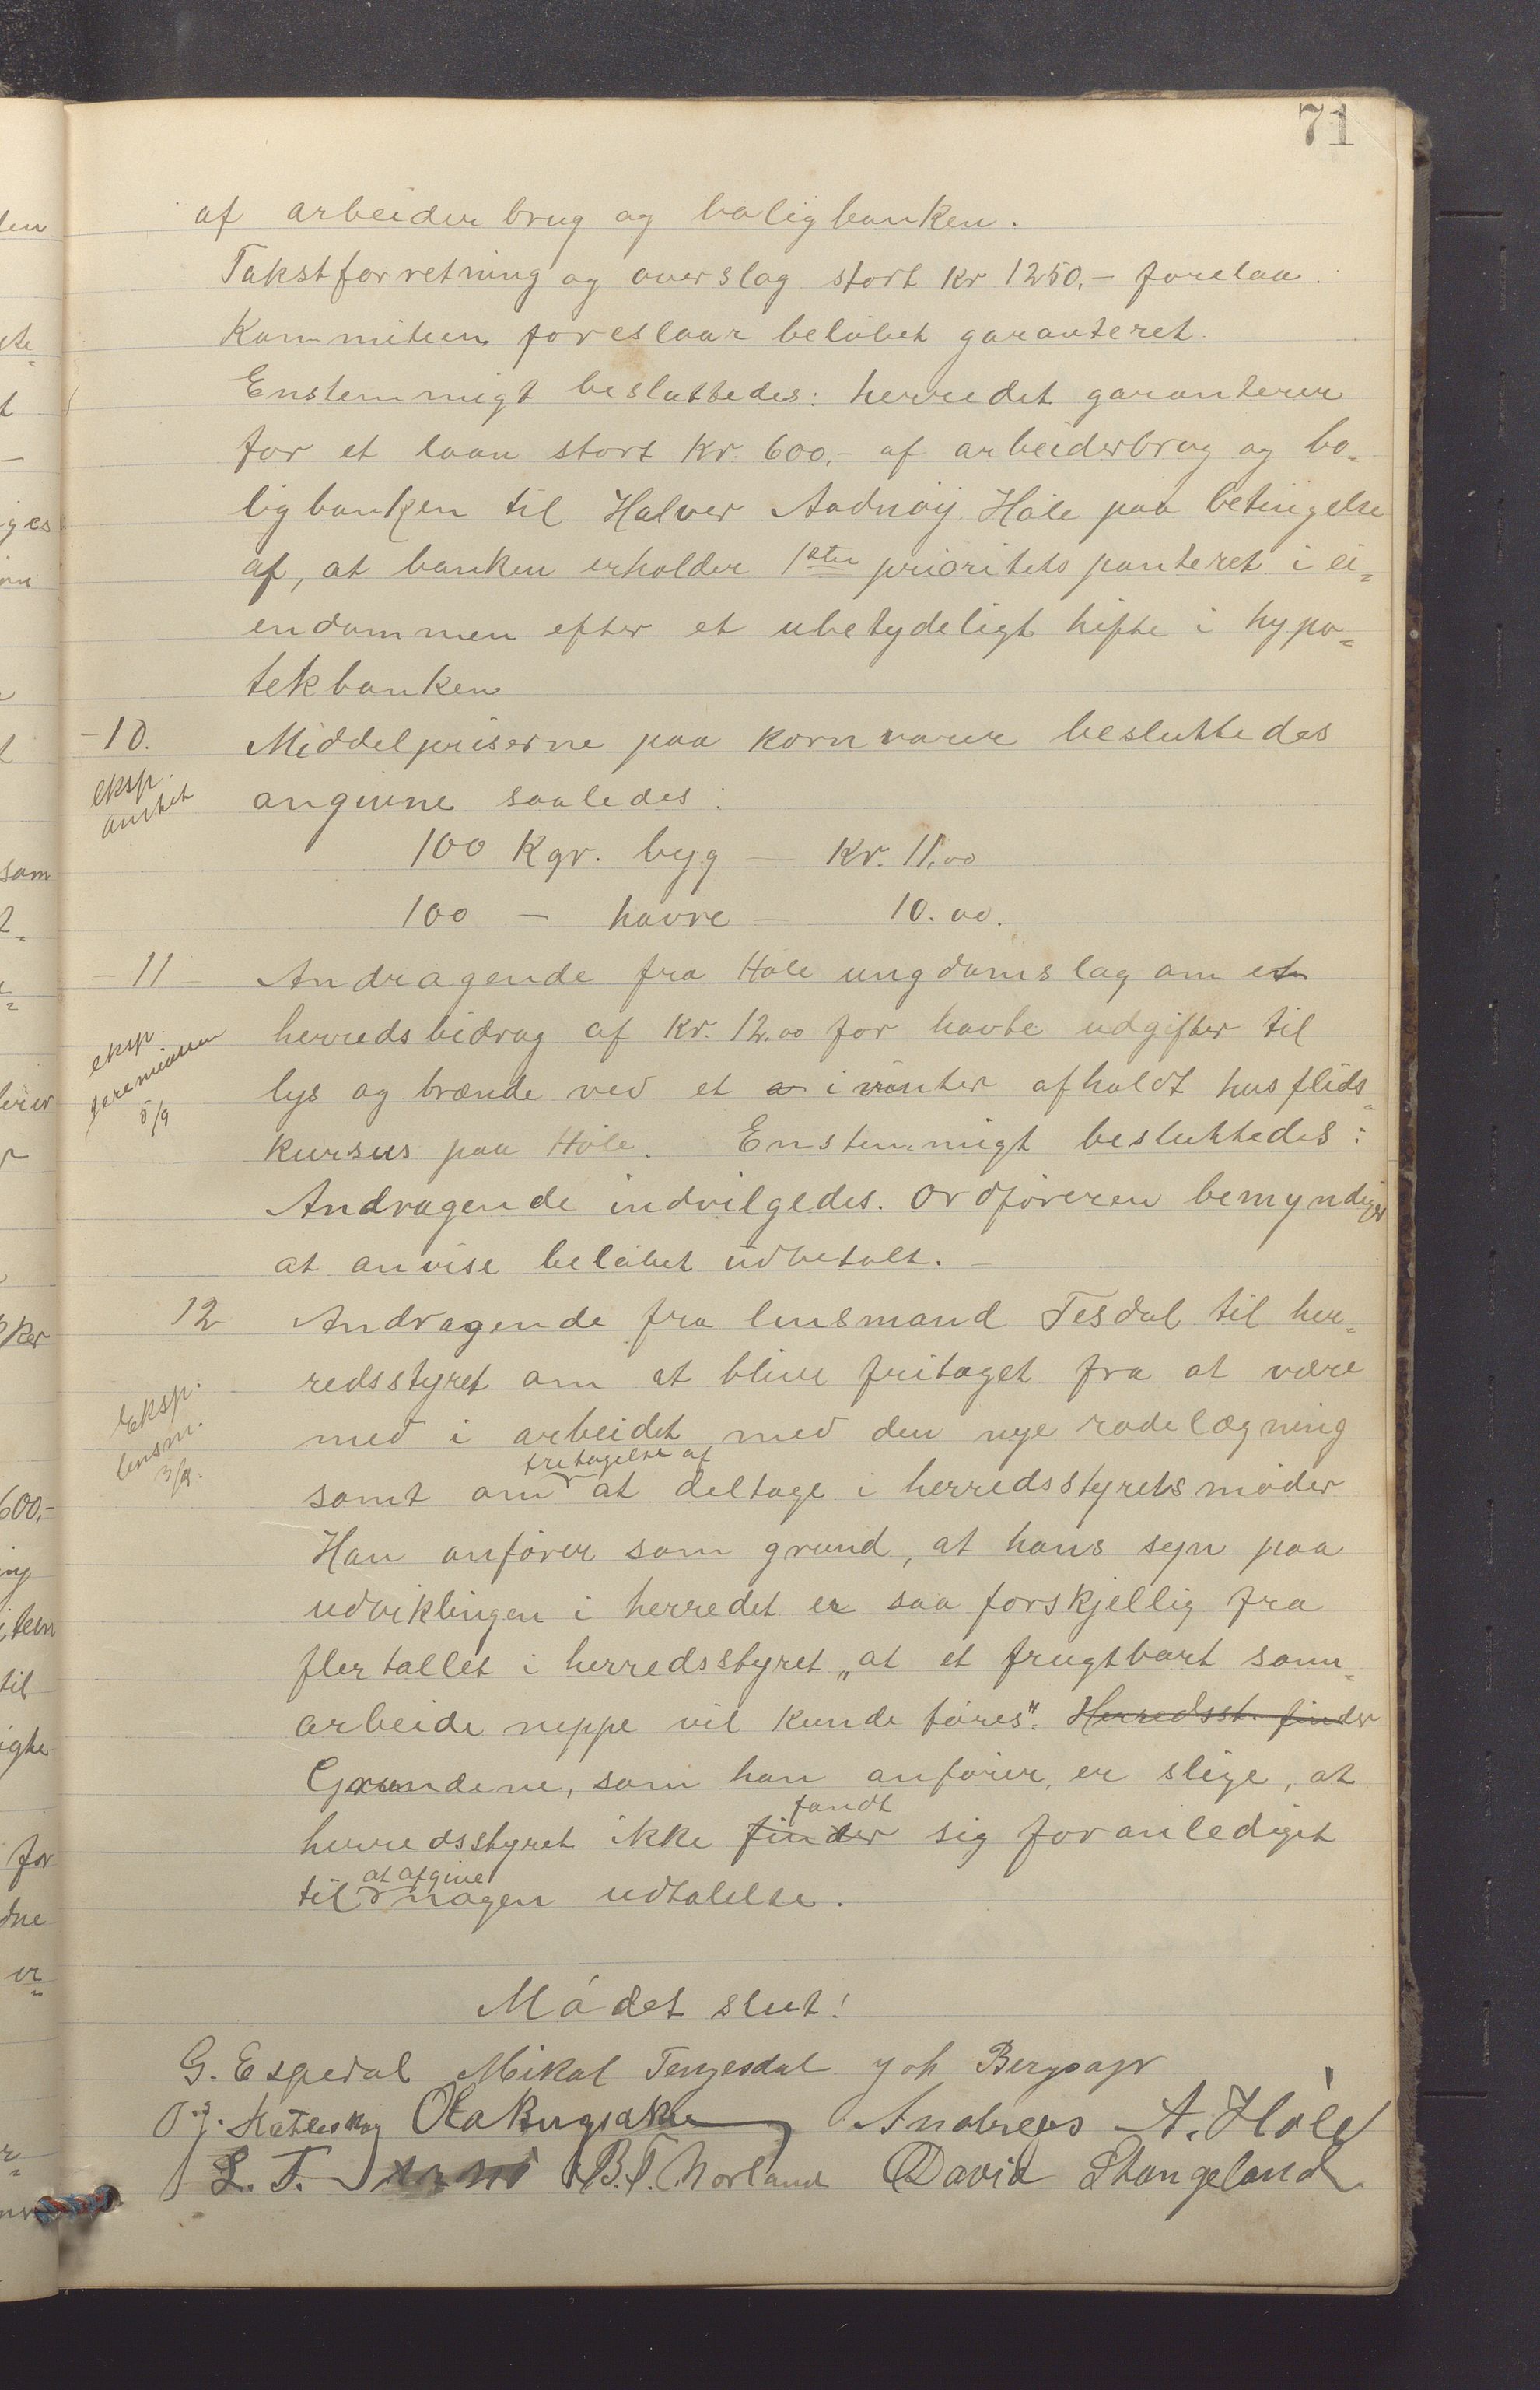 71
af arbeiderbrug og boligbanken.
Takstforretning og overslag stort kr 1250,- forelaa.
Kommiteen foreslaar beløbet garanteret.
Enstemmigt besluttedes: herredet garanterer
for et laan stort kr. 600,- af arbeiderbrug og bo-
ligbanken til Halver Aadnøij Høle paa betingelse
af, at banken erholder 1ste prioritets panteret i ei-
endommen efter et ubetydeligt hefte i hypo-
tekbanken
-10. Middelpriserne paa kornvarer besluttedes
eksp.
amtet
angivne saaledes:
100 Kgr. byg - Kr. 11.00
100 - havre - 10.00.
-11- Andragende fra Høle ungdomslag om et
herredsbidrag af Kr. 12.00 for havte udgifter til
eksp.
Jeremiassen
5/9
lys og brænde ved et i vinter afholdt husflids-
kursus paa Høle. Enstemmigt besluttedes:
Andragende indvilgedes. Ordføreren bemyndiges
at anvise beløbet udbetalt.-
12 Andragende fra lensmand Tesdal til her-
redsstyret om at blive fritaget fra at være
Eksp.
lensm.
3/9.
med i arbeidet med den nye rodelægning
fritagelse af
samt om at deltage i herredsstyrets møder
Han anfører som grund, at hans syn paa
udviklingen i herredet er saa forskjellig fra
flertallet i herredsstyret „at et frugtbart sam-
arbeide neppe vil kunde føres". Herredsst. finder
Grundene, som han anfører, er slige, at
fandt
herredsstyret ikke finder sig foranlediget
at afgive
til nogen udtalelse.
Mødet slut!
G. Espedal Mikal Tengesdal Joh Bergsagr
O. J. Hatleskog Andreas A. Høle
L. T. B. T. Norland David Stangeland